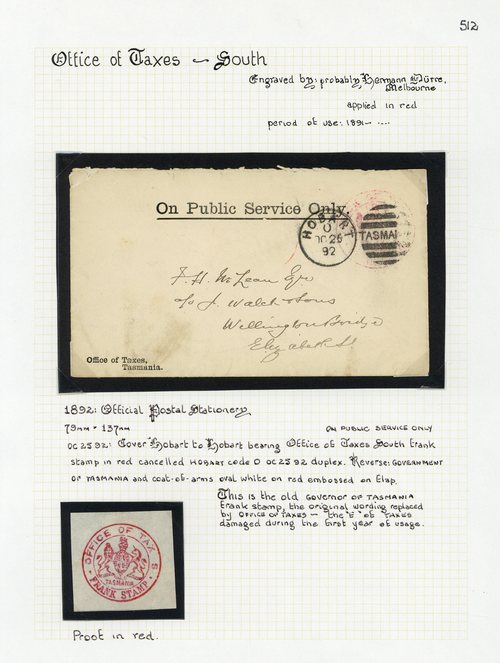 512
Office of Taxes - South
Engraved by: probably Hermann Dürre,
Melbourne
applied in red
period of use: 1891- ....
On Public Service Only.
HOBART
O
OC 25
92
TASMAN
F. H. McLean Esq
c/o J. Walch & Sons
Wellington Bridge
Elizabeth St
Office of Taxes,
Tasmania.
1892: Official Postal Stationery
79mm × 137mm
ON PUBLIC SERVICE ONLY
OC 25 92: Cover Hobart to Hobart bearing Office of Taxes South frank
stamp in red cancelled HOBART code O OC 25 92 duplex. Reverse: GOVERNMENT
OF TASMANIA and coat-of-arms oval white on red embossed on flap.
This is the old GOVERNOR OF TASMANIA
frank stamp, the original wording replaced
by OFFICE OF TAXES - the 'E' of TAXES
damaged during the first year of usage.
OFFICE OF TAX S
TASMANIA
FRANK STAMP
Proof in red.